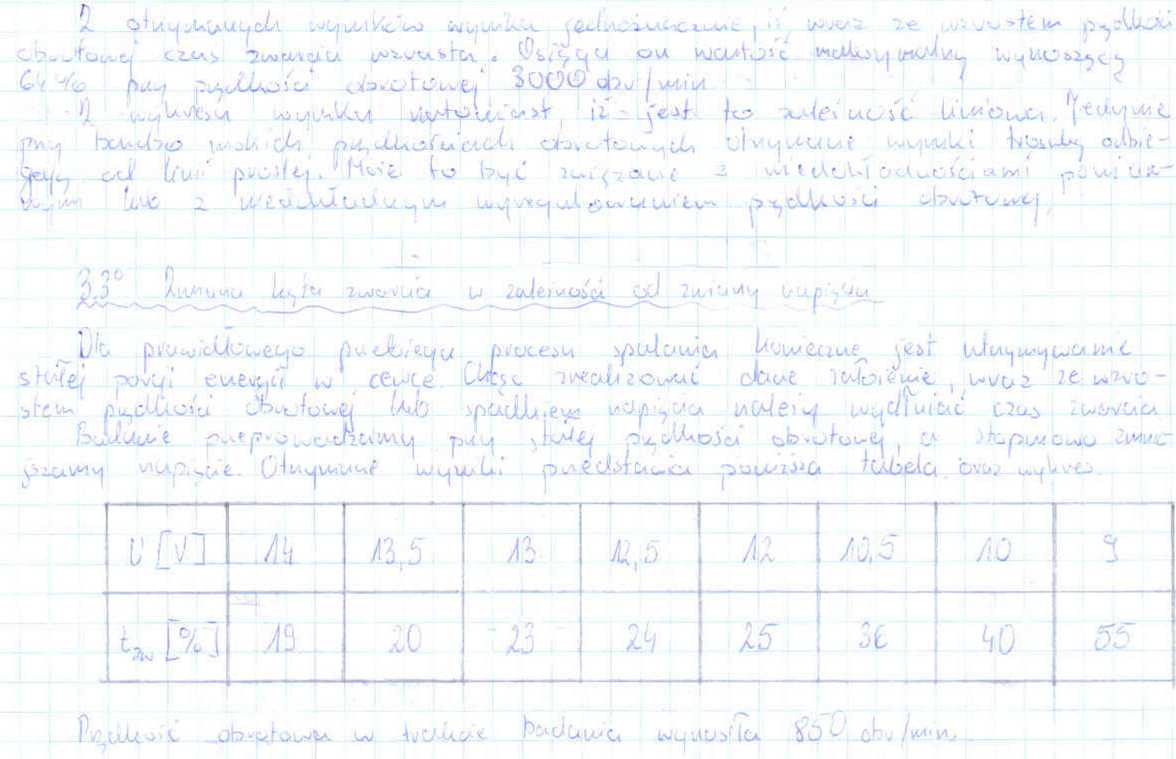 Z otrzymanych wyników wynika jednoznacznie, iż wraz ze wzrostem prędkości
obrotowej czas zwarcia wzrasta. Osiąga on wartość maksymalną wynoszącą
64% przy prędkości obrotowej 3000 obr/min.
Z wykresu wynika natomiast, iż jest to zależność liniowa. Jedynie
przy bardzo niskich prędkościach obrotowych otrzymane wyniki troszkę odbie-
gają od linii prostej. Może to być związane z niedokładnościami pomiaro-
wymi lub z niedokładnym wyregulowaniem prędkości obrotowej.
3.3° Zmiana kąta zwarcia w zależności od zmiany napięcia
Dla prawidłowego przebiegu procesu spalania konieczne jest utrzymywanie
stałej porcji energii w cewce. Chcąc zrealizować dane założenie, wraz ze wzro-
stem prędkości obrotowej lub spadkiem napięcia należy wydłużać czas zwarcia
Badanie przeprowadzamy przy stałej prędkości obrotowej, a stopniowo zmniej-
szamy napięcie. Otrzymane wyniki przedstawia poniższa tabela oraz wykres.
U [V] 14 13,5 13 12,5 12 10,5 10 9
t_zw [%] 19 20 23 24 25 36 40 55
Prędkość obrotowa w trakcie badania wynosiła 850 obr/min.